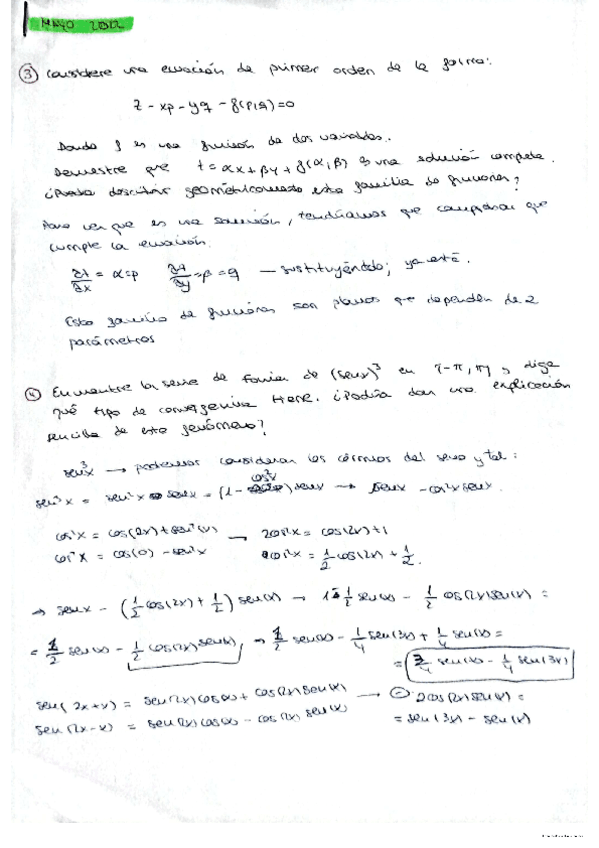 MAYO 2012
③ Considere una ecuación de primer orden de la forma:
z - xp - yq - f(p,q) = 0
Donde f es una función de dos variables.
Demuestre que t = αx + βy + f(α,β) es una solución completa.
¿Puede describir geométricamente esta familia de funciones?
Para ver que es una solución, tendríamos que comprobar que
cumple la ecuación.
∂t/∂x = α = p ∂t/∂y = β = q — sustituyéndolo; ya está.
Esta familia de funciones son planos que dependen de 2
parámetros
④ Encuentre la serie de Fourier de (senx)³ en [-π, π] y diga
qué tipo de convergencia tiene. ¿Podría dar una explicación
sencilla de este fenómeno?
sen³x → podemos considerar los del seno y tal:
sen³x = sen²x senx = (1 - cos²x) senx → senx - cos²x senx.
cos²x = cos(2x) + sen²(x) → 2cos²x = cos(2x) + 1
cos²x = cos(0) - sen²x cos²x = 1/2 cos(2x) + 1/2.
⇒ senx - (1/2 cos(2x) + 1/2) sen(x) → 1/2 sen(x) - 1/2 cos(2x) sen(x) =
= 1/2 sen(x) - 1/2 cos(2x) sen(x) → 1/2 sen(x) - 1/4 sen(3x) + 1/4 sen(x) =
= 3/4 sen(x) - 1/4 sen(3x)
sen(2x+x) = sen(2x)cos(x) + cos(2x)sen(x) → ⊖: 2cos(2x)sen(x) =
sen(2x-x) = sen(2x)cos(x) - cos(2x) sen(x) = sen(3x) - sen(x)